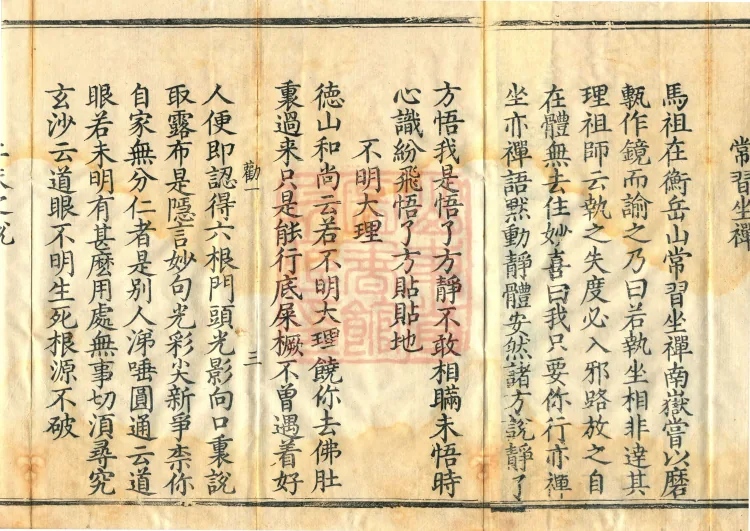 常習坐禪
馬祖在衡岳山常習坐禪南嶽嘗以磨
甎作鏡而諭之乃曰若執坐相非達其
理祖師云執之失度必入邪路放之自
在體無去住妙喜曰我只要你行亦禪
坐亦禪語黙動靜體安然諸方說靜了
方悟我是悟了方靜不敢相瞞未悟時
心識紛飛悟了方貼貼地
不明大理
德山和尚云若不明大理饒你去佛肚
裏過来只是能行底屎橛不曾遇着好
勸一
三
人便即認得六根門頭光影向口裏說
取露布是隱言妙句光彩尖新爭柰你
自家無分仁者是別人涕唾圓通云道
眼若未明有甚麽用處無事切須尋究
玄沙云道眼不明生死根源不破